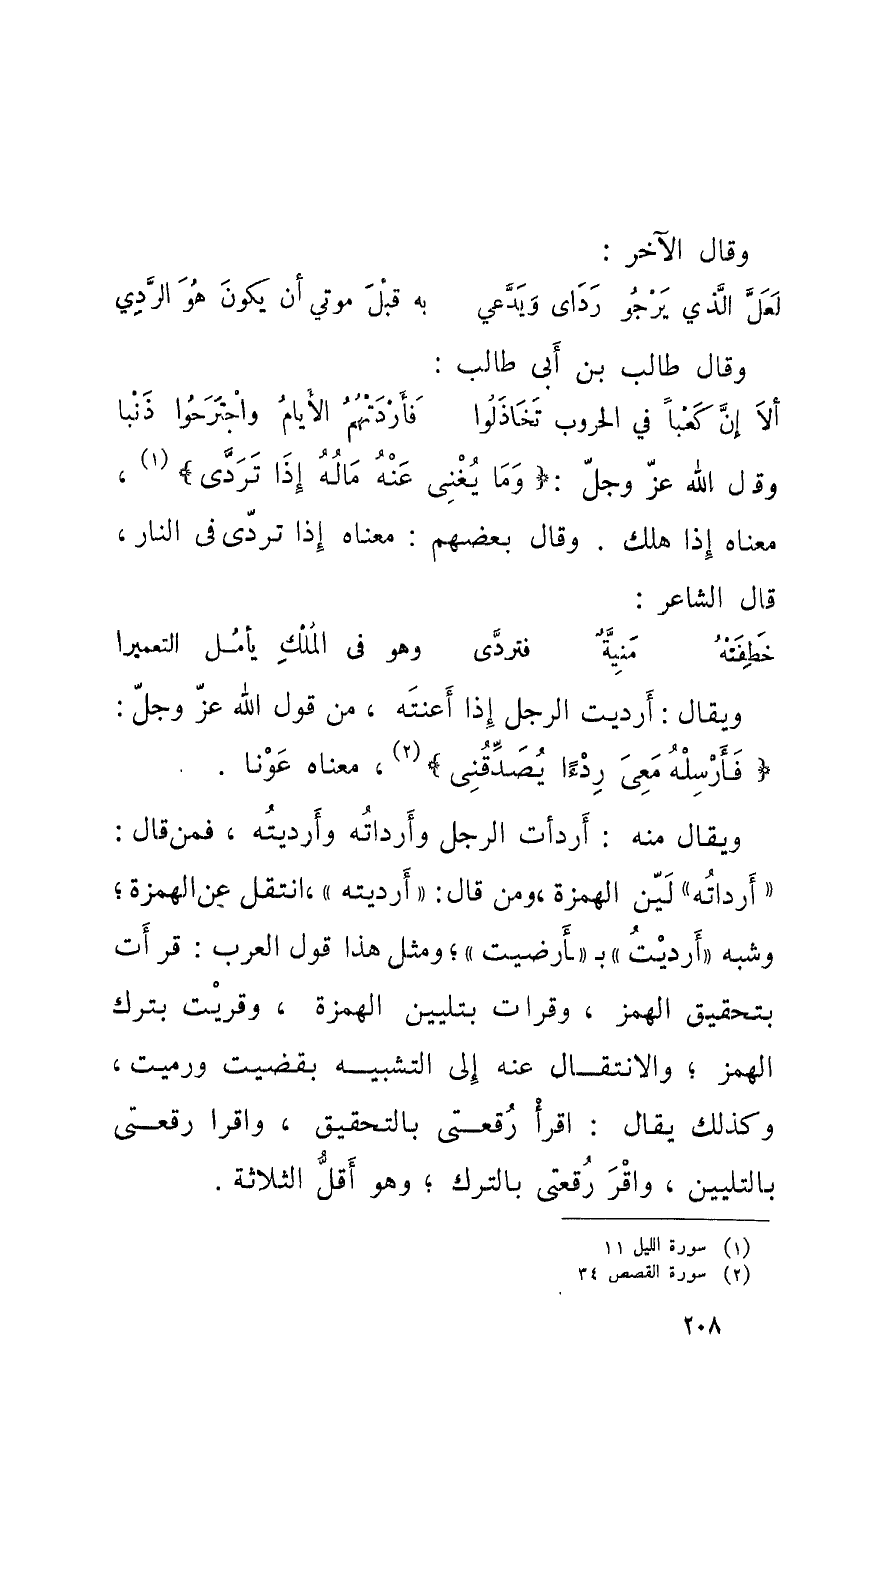 وقال الآخر :
لَعَلَّ الَّذي يَرْجُو رَدَاى وَيَدَّعي به قبْلَ موتي أن يكونَ هُوَ الرَّدِي
وقال طالب بن أَبى طالب :
ألاَ إنَّ كَعْباً في الحروب تَخَاذَلُوا فَأَرْدَتْهُمُ الأَيامُ واجْتَرَحُوا ذَنْبا
وقل الله عزّ وجلّ : ﴿ وَمَا يُغْنِى عَنْهُ مَالُهُ إِذَا تَرَدَّى ﴾ (١) ،
معناه إذا هلك . وقال بعضهم : معناه إذا تردّى فى النار ،
قال الشاعر :
خَطِفَتْهُ مَنِيةٌ فتردَّى وهو فى المُلْكِ يأمُـل التعميرا
ويقال : أَرديت الرجل إِذا أَعنتَه ، من قول الله عزّ وجلّ :
﴿ فَأَرْسِلْهُ مَعِىَ رِدْءًا يُصَدِّقُنِى ﴾ (٢) ، معناه عَوْنا .
ويقال منه : أَردأت الرجل وأَرداتُه وأَرديتُه ، فمن قال :
« أَرداتُه » لَيّن الهمزة ، ومن قال : « أَرديته » ، انتقل عن الهمزة ؛
وشبه « أَرديْتُ » بـ « أَرضيت » ؛ ومثل هذا قول العرب : قرأَت
بتحقيق الهمز ، وقرات بتليين الهمزة ، وقريْت بترك
الهمز ؛ والانتقـــال عنه إلى التشبيـــه بقضيت ورميت ،
وكذلك يقال : اقرأْ رُقعــتى بالتحقيق ، واقرا رقعــتى
بالتليين ، واقْرَ رُقعتى بالترك ؛ وهو أَقلُّ الثلاثة .
(١) سورة الليل ١١
(٢) سورة القصص ٣٤
٢٠٨